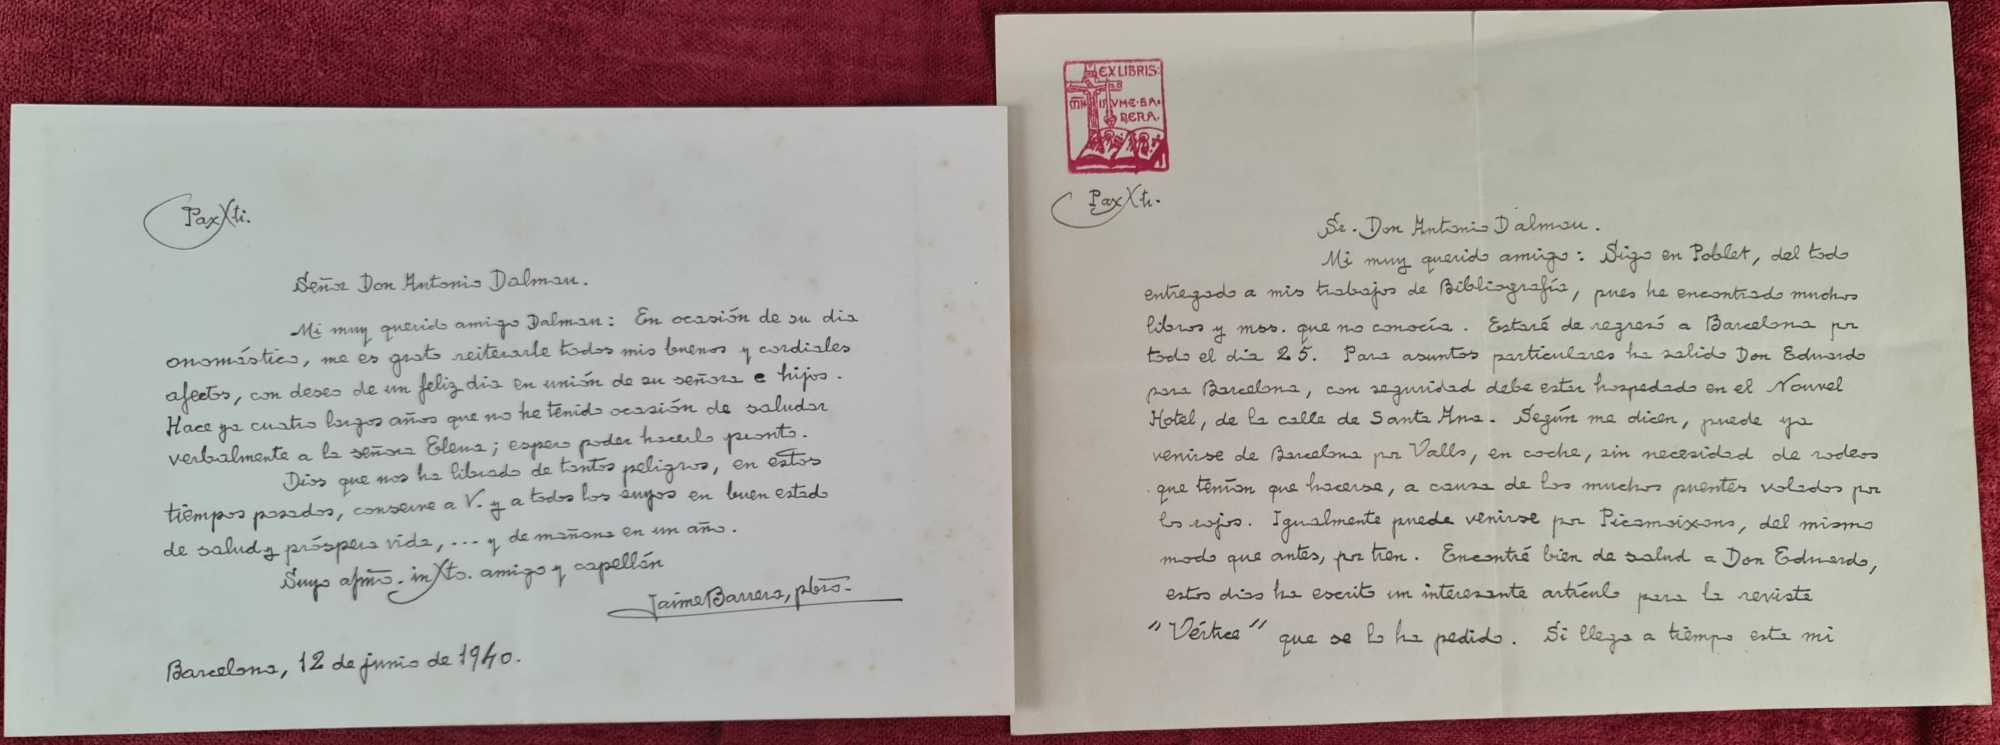 Pax Xti.
Señor Don Antonio Dalmau.
Mi muy querido amigo Dalmau: En ocasión de su dia
onomástico, me es grato reiterarle todos mis buenos y cordiales
afectos, con deseo de un feliz dia en unión de su señora e hijos.
Hace ya cuatro largos años que no he tenido ocasión de saludar
verbalmente a la señora Elena; espero poder hacerlo pronto.
Dios que nos ha librado de tantos peligros, en estos
tiempos pasados, conserve a V. y a todos los suyos en buen estado
de salud y próspera vida, ... y de mañana en un año.
Suyo afmo. in Xto. amigo y capellán
Jaime Barrera, pbro.
Barcelona, 12 de junio de 1940.
EX LIBRIS:
MN IAVME BA
RERA.
Pax Xti.
Sr. Don Antonio Dalmau.
Mi muy querido amigo: Sigo en Poblet, del todo
entregado a mis trabajos de Bibliografía, pues he encontrado muchos
libros y mss. que no conocía. Estaré de regreso a Barcelona por
todo el dia 25. Para asuntos particulares ha salido Don Eduardo
para Barcelona, con seguridad debe estar hospedado en el Nouvel
Hotel, de la calle de Santa Ana. Según me dicen, puede ya
venirse de Barcelona por Valls, en coche, sin necesidad de rodeos
que tenían que hacerse, a causa de los muchos puentes volados por
los rojos. Igualmente puede venirse por Picamoixons, del mismo
modo que antes, por tren. Encontré bien de salud a Don Eduardo,
estos dias ha escrito un interesante artículo para la revista
"Vértice" que se lo ha pedido. Si llega a tiempo esta mi